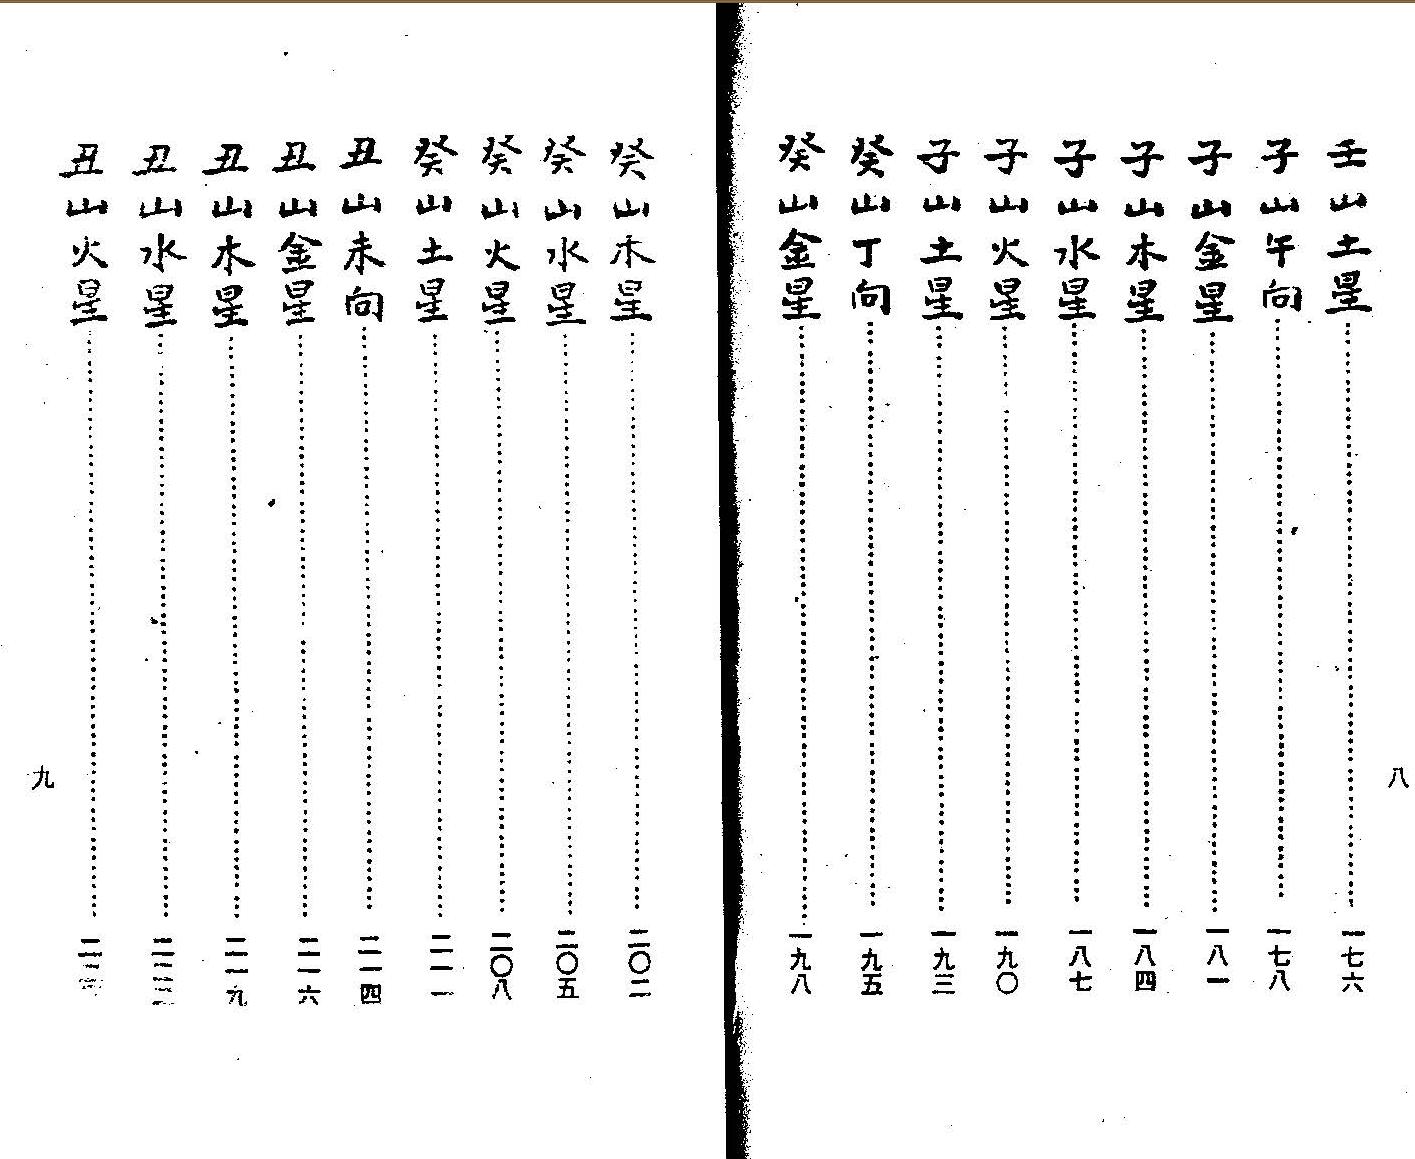 壬山土星………一七六
子山午向………一七八
子山金星………一八一
子山木星………一八四
子山水星………一八七
子山火星………一九〇
子山土星………一九三
癸山丁向………一九五
癸山金星………一九八
八
癸山木星………二〇二
癸山水星………二〇五
癸山火星………二〇八
癸山土星………二一一
丑山未向………二一四
丑山金星………二一六
丑山木星………二一九
丑山水星………
丑山火星………
九